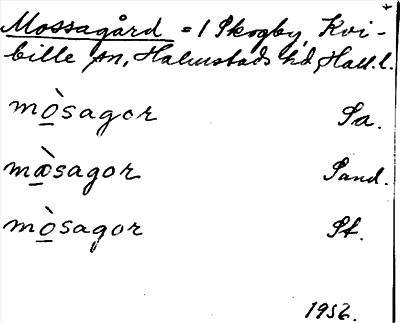 Mossagård = 1 Skogby, Kvi-
bille sn, Halmstads hd, Hall. l.
mò̲sagor Sa.
mæ̲̀sagor Sand.
mò̲sagor St.
1952.